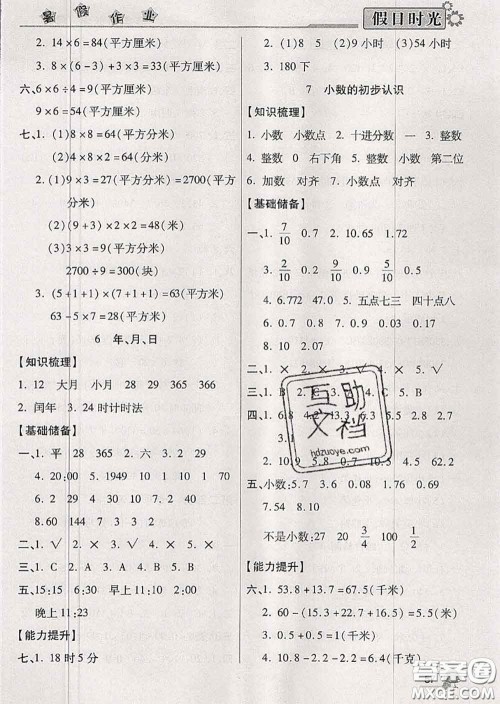 暑假作业
假日时光
2. 14×6=84(平方厘米)
3. 8×(6-3)+3×3=33(平方厘米)
六、6×6÷4=9(平方厘米)
9×6=54(平方厘米)
七、1. (1)8×8=64(平方分米)
(2)9×6=54(平方厘米)
2. (1)9×3=27(平方分米)=2700(平方
分米)
(2) (9+3)×2×2=48(米)
(3) 3×9=27(平方米)
2700÷9=300(块)
3. (5+1+1)×(7+1+1)=63(平方米)
63-5×7=28(平方米)
6 年、月、日
【知识梳理】
1. 12 大月 小月 28 29 365 366
2. 闰年 3. 24时计时法
【基础储备】
一、1. 平 28 365 2. 六 3. 29
4. 20:00 5. 1949 10 1 6. 10 7. 60
8. 60 144
二、1. √ 2. × 3. × 4. ×
三、1. B 2. A 3. C 4. A 5. B
五、15:15 6:30 早上11:15
晚上11:23
【能力提升】
七、1. 18时5分
2. (1)8 5 (2)9小时 5小时
3. 180下
7 小数的初步认识
【知识梳理】
1. 小数 小数点 2. 十进分数 一 3. 整数
4. 整数 0 右下角 5. 整数 小数 第二位
6. 加数 对齐 7. 小数点 对齐
【基础储备】
一、1. 7/10 0.7 2. 10.65 1.72
3. 2/10 9/10 0.2 0.9 4. 0.1
5. 6.772 4.05003 6. 五点七三 四十点八
7. > < > < > =
8. 10 2.07
二、1. × 2. √ 3. √ 4. × 5. ×
三、1. B 2. C
四、1. 6.8
2. 10.9
五、小数:
7.54 8.10
不是小数:27 20 3/4 100
【能力提升】
六、1. 53.8+13.7=67.5(千米)
3. 0.5+0.5+0.1=1.1(米)
4. 10.8-2.2-2.2=6.4(千克)
互助文档
hdzuoye.com
答案圈
MXQE.COM